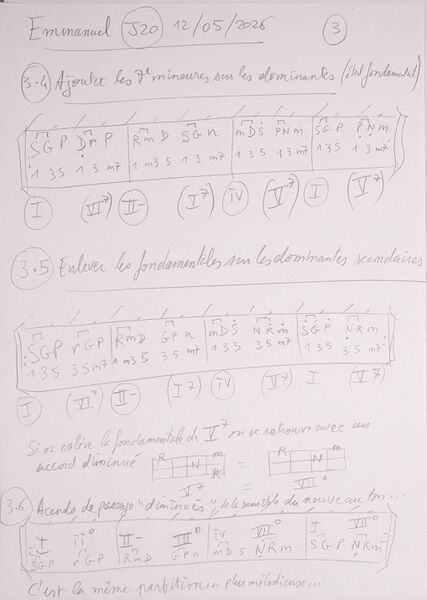 Emmanuel J20 12/05/2026 3
3-4 Ajouter les 7e mineures sur les dominantes (état fondamental)
SGP DrP RmD SGn mDS PNm SGP PNm
1 3 5 1 3 m7 1 m3 5 1 3 m7 1 3 5 1 3 m7 1 3 5 1 3 m7
I (VI7) II- (V7) iv (V7) I (V7)
3.5 Enlever les fondamentales sur les dominantes secondaires
SGP rGP RmD GPn mDS NRm SGP NRm
1 3 5 3 5 m7 1 m3 5 3 5 m7 1 3 5 3 5 m7 1 3 5 3 5 m7
I (VI7) II- (I7) iv (V7) I (V7)
Si on enlève la fondamentale de V7 on se retrouve avec un
accord diminué R N m R = R N m
V7 = VII°
3.6 Accords de passage "diminués", de la sensible du nouveau ton...
I ii° II- III° iv VII° I VII°
SGP rGP RmD GPn mDS NRm SGP NRm
C'est la même partition en plus mélodieuse...